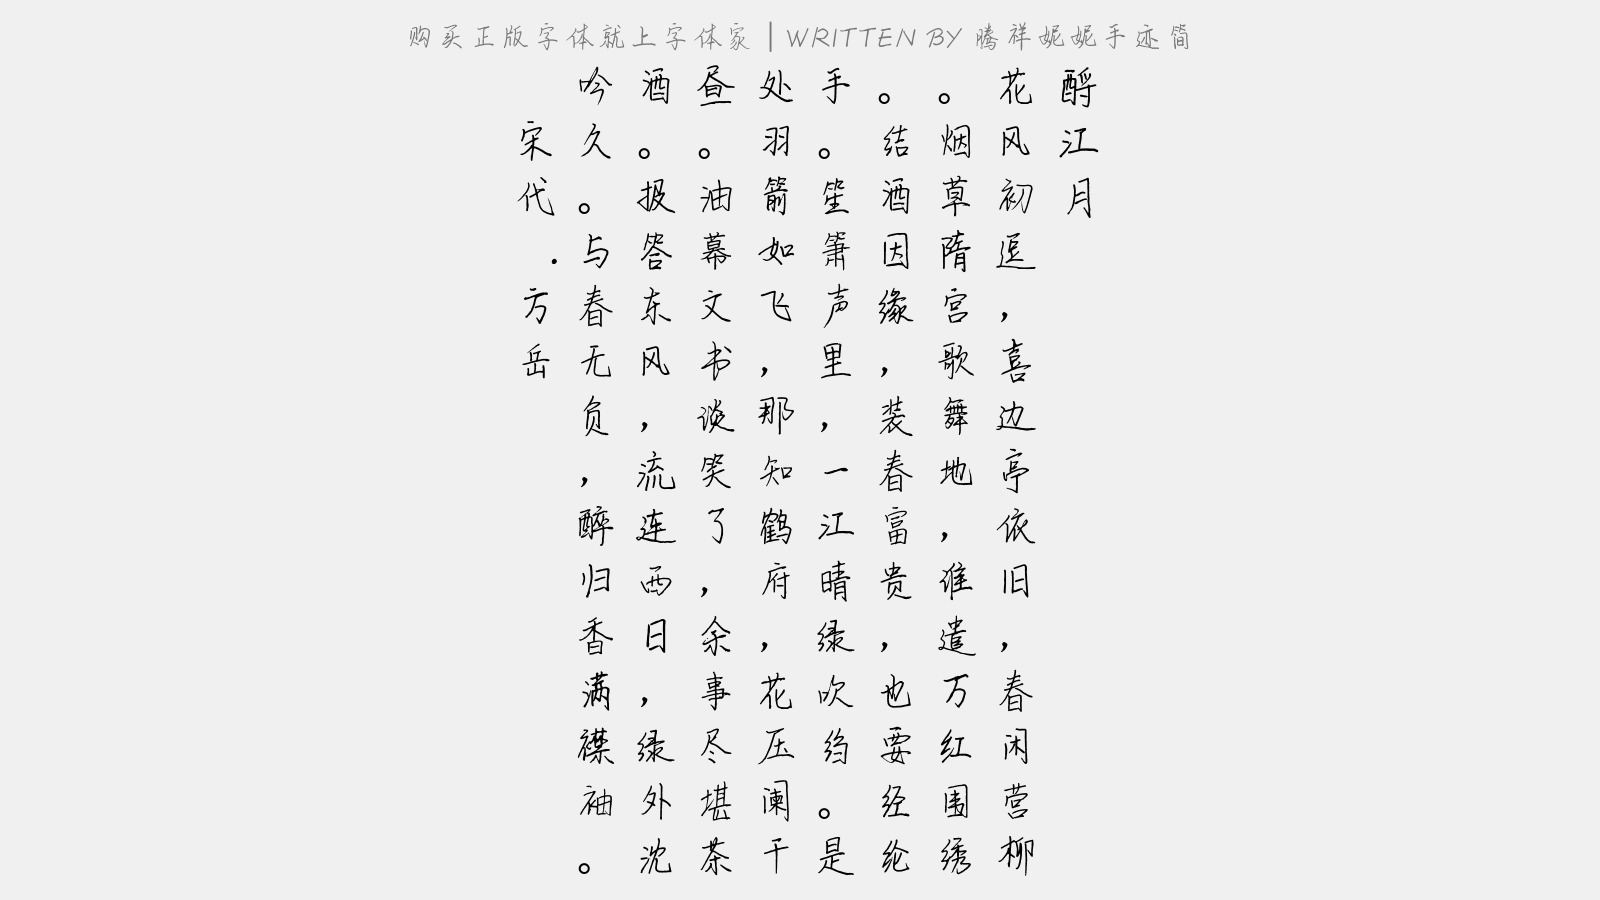 购买正版字体就上字体家 | WRITTEN BY 腾祥妮妮手迹简
酹江月
花风初逗，喜边亭依旧，春闲营柳
。烟草隋宫歌舞地，谁遣万红围绣
。结酒因缘，装春富贵，也要经纶
手。笙箫声里，一江晴绿吹绉。是
处羽箭如飞，那知鹤府，花压阑干
昼。油幕文书谈笑了，余事尽堪茶
酒。报答东风，流连西日，绿外沈
吟久。与春无负，醉归香满襟袖。
宋代.方岳